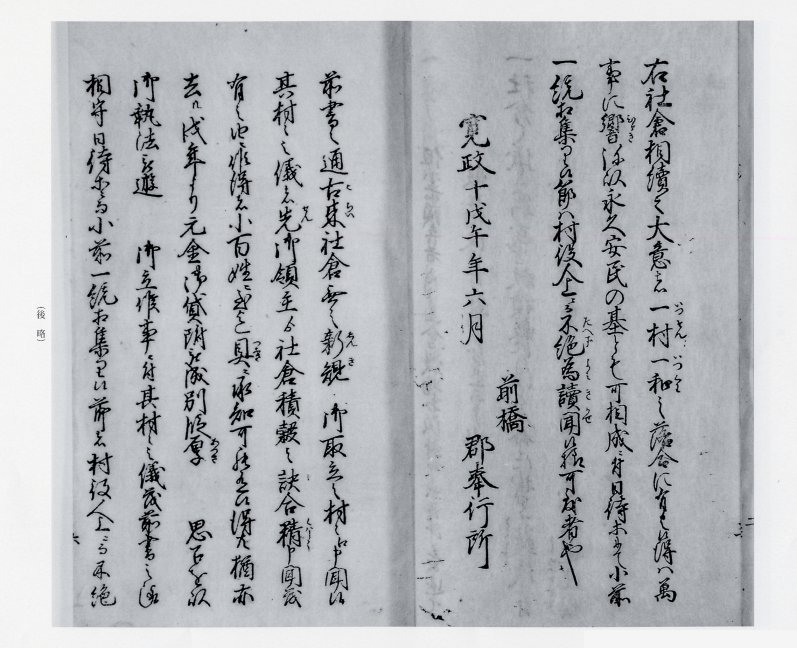 右社倉相續之大意者一村一和之落合に有之候得ハ萬
事に響候故永久安民の基とも可相成ニ付日待等ニ而小前
一統打集り候節ハ村役人ゟ不絶為讀聞候様可致者也
寛政十戊午年六月
前橋
郡奉行所
前書之通古来社倉無之新規御取立之村々江申聞候
其村々之儀者先御領主ゟ社倉積穀之訣合積申聞
有之由候得者小百姓ニ至迄具ニ承知可罷在候得共猶亦
去ル戌年ゟ元金御貸附被成別段厚思召を以
御執法被遊御立候事ニ付其村々之儀茂前書之通
相守日待等ニ而小前一統打集り候節者村役人ゟ不絶
(後略)